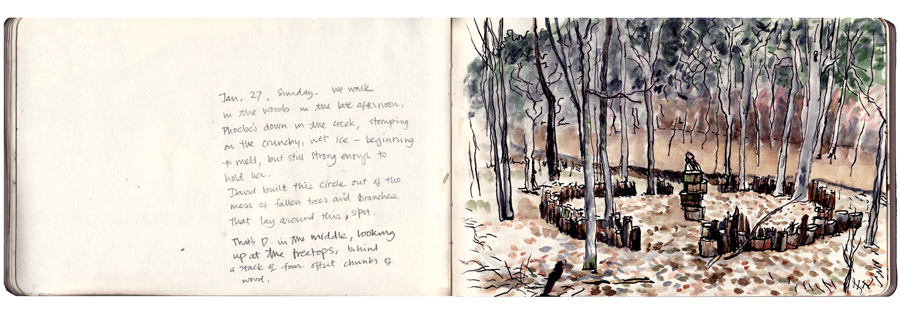 Jan. 27, Sunday. We walk
in the woods in the late afternoon.
Phoebe's down in the creek, stomping
on the crunchy, wet ice – beginning
to melt, but still strong enough to
hold her.
David built this circle out of the
mess of fallen trees and branches
that lay around this spot.
That's D. in the middle, looking
up at the treetops, behind
a stack of four offset chunks of
wood.